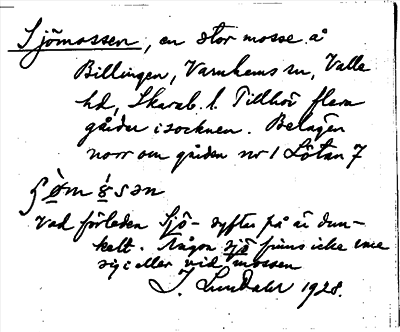 Sjömossen, en stor mosse å
Billingen, Varnhems sn, Valle
hd, Skarab. l. Tillhör flera
gårdar i socknen. Belägen
norr om gården nr 1 Lötan 7
vad förleden Sjö- syftar på är dun-
kelt. Någon sjö finns icke vare
sig i eller vid mossen
J. Lundahl 1928.